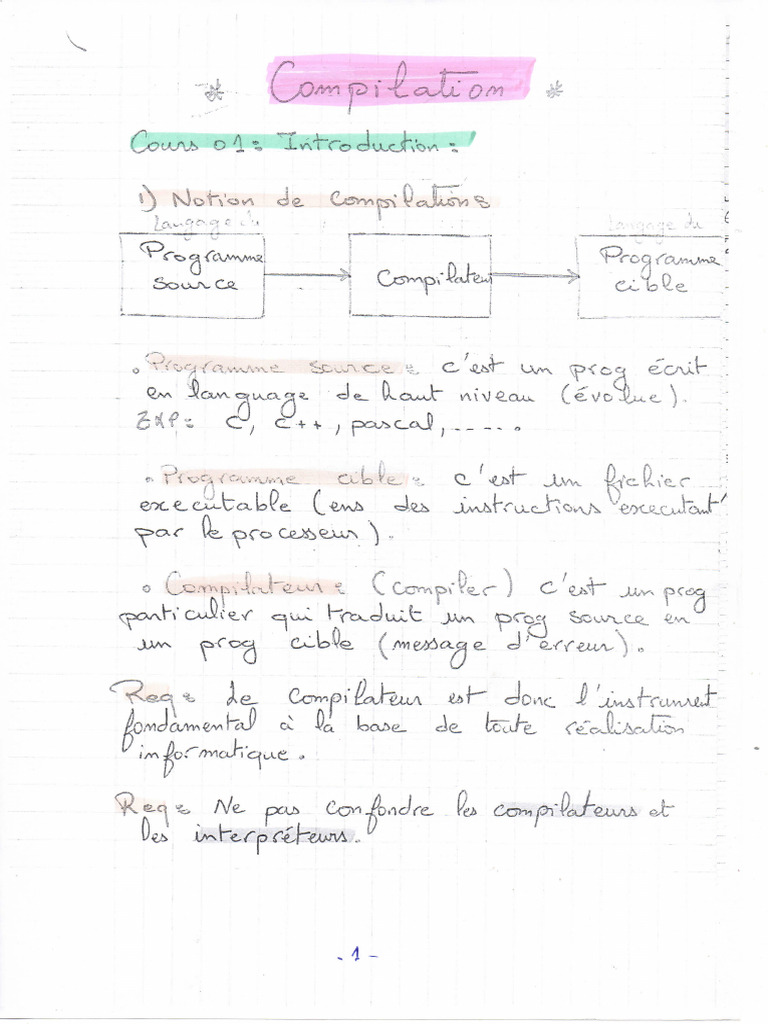 * Compilation *
Cours 01: Introduction:
1) Notion de Compilation:
Langage du
Langage du
Programme source
Compilateur
Programme cible
• Programme source: c'est un prog écrit
en language de haut niveau (évolue).
EXP: C, C++, pascal, .....
• Programme cible: c'est un fichier
executable (ens des instructions executant
par le processeur).
• Compilateur: (compiler) c'est un prog
particulier qui traduit un prog source en
un prog cible (message d'erreur).
Req: Le compilateur est donc l'instrument
fondamental à la base de toute réalisation
informatique.
Req: Ne pas confondre les compilateurs et
les interpréteurs.
- 1 -